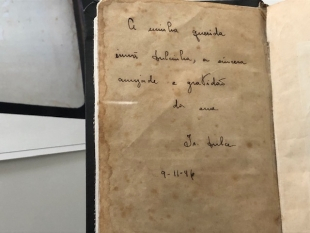 A minha querida
irmã Julinha, a sincera
amizade e gratidão
da ana
9-11-46